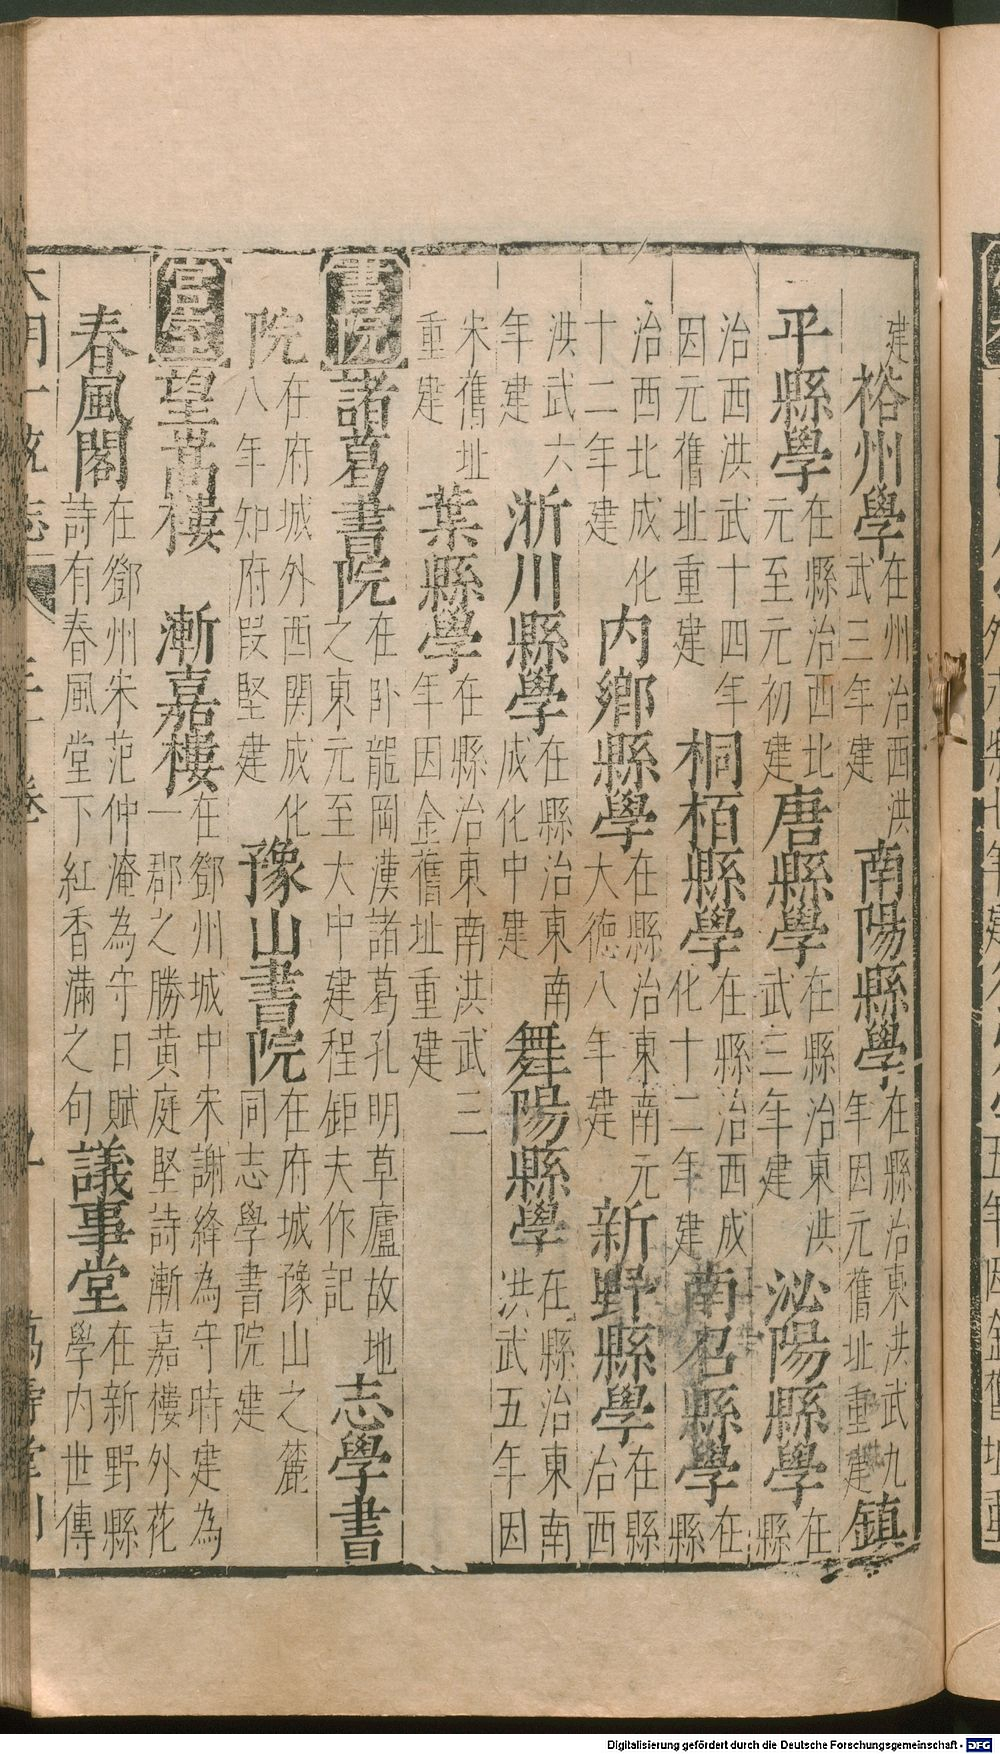 建裕州學在州治西洪武三年建南陽縣學在縣治東洪武九年因元舊址重建鎮
平縣學在縣治西北元至元初建唐縣學在縣治東洪武三年建泌陽縣學在縣
治西洪武十四年因元舊址重建桐栢縣學在縣治西成化十二年建南召縣學在縣
治西北成化十二年建內鄉縣學在縣治東南元大德八年建新野縣學在縣治西
洪武六年建淅川縣學在縣治東南成化中建舞陽縣學在縣治東南洪武五年因
宋舊址重建葉縣學在縣治東南洪武三年因金舊址重建
書院諸葛書院在卧龍岡漢諸葛孔明草廬故地之東元至大中建程鉅夫作記志學書
院在府城外西関成化八年知府段堅建豫山書院在府城豫山之麓同志學書院建
宮室望嵩樓漸嘉樓在鄧州城中宋謝絳為守時建為一郡之勝黃庭堅詩漸嘉樓外花
春風閣在鄧州宋范仲淹為守日賦詩有春風堂下紅香滿之句議事堂在新野縣學內世傳
大明一統志 三十卷 九 萬壽堂刊
Digitalisierung gefördert durch die Deutsche Forschungsgemeinschaft - DFG